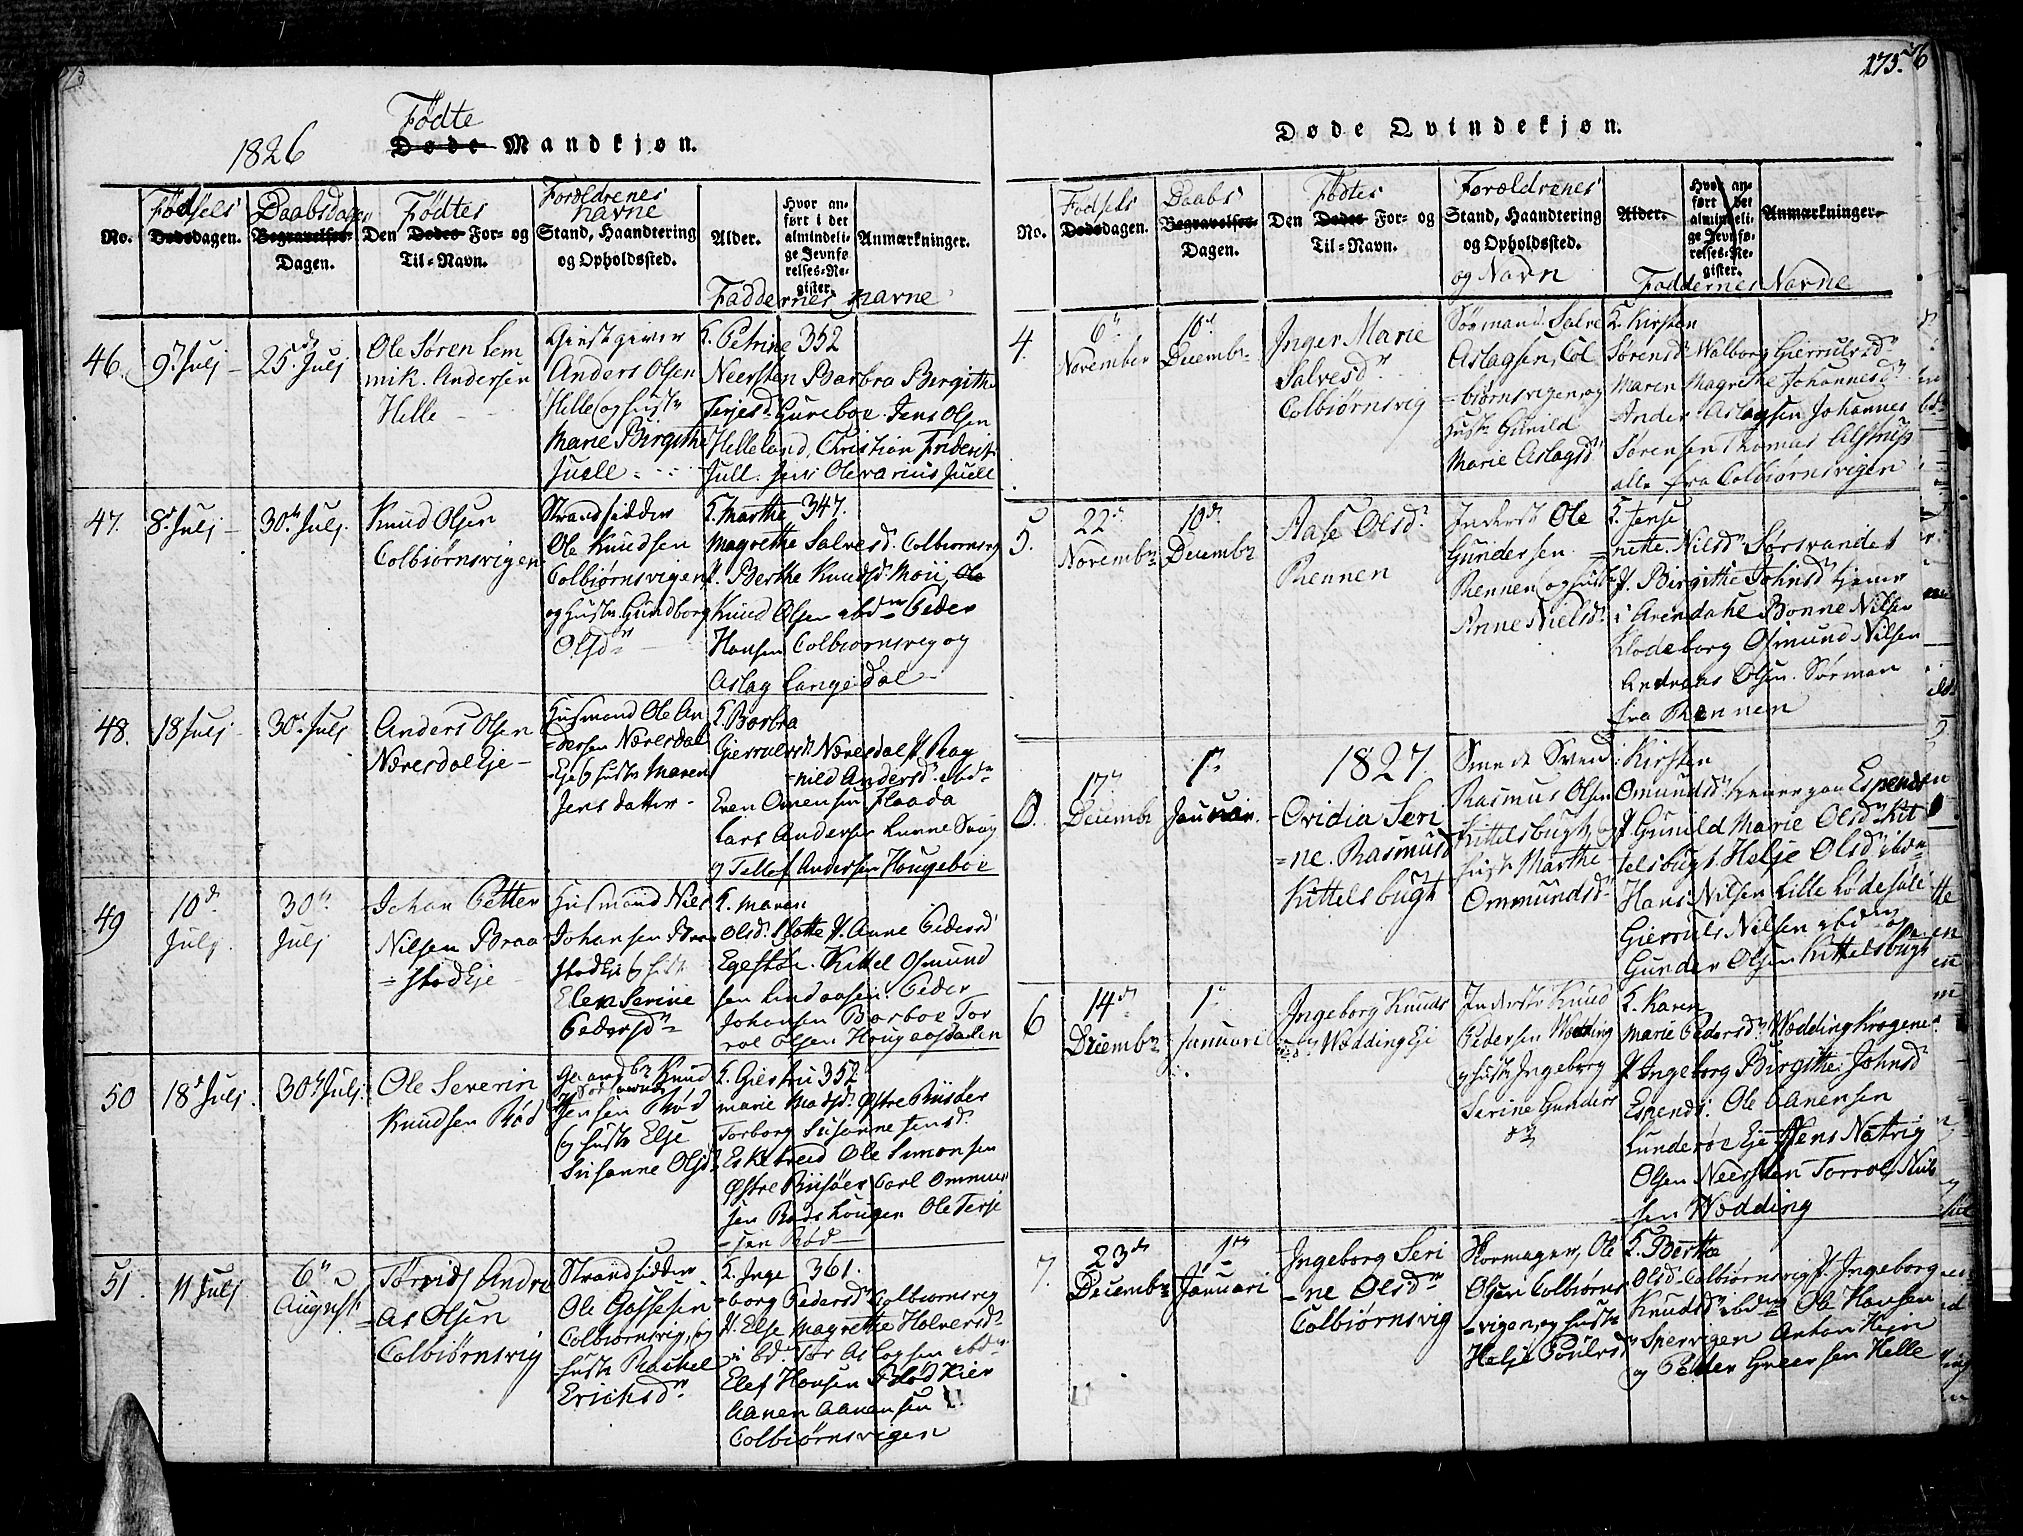 175. 76
1826
Fødte
Døde Mandkjøn.
No.
Fødsels
Dødsdagen.
Daabsdagen
Begravelses-
Dagen.
Fødtes
Den Dødes For- og
Til-Navn.
Forældrenes
Navne
Stand, Haandtering
og Opholdssted.
Alder.
Hvor an-
ført i det
almindeli-
ge Jevnfø-
relses-Re-
gister.
Anmærkninger.
Faddernes Navne
46.
9de Julj
25de Julj
Ole Søren Lem
mik. Andersen
Helle
Anders Olsen
Helle og hustr
Marie Birgithe
Juell
F. Petrine 352
Neersten Barbra Birgithe
Terjesd. Gureboe. Jens Olsen
Helleland, Christian Friderik
Jull. Jens Olevarius Juell
47.
8de Julj
30te Julj
Knud Olsen
Colbiørnsvigen
Strandsidder
Ole Knudsen
Colbiørnsvigen
og hustr. Gundborg
Olsdr
F. Marthe 347.
Magrethe Salvesd. Colbiørnsvig
P. Berthe Knudsd. Moii, Ole
Knud Olsen ibdm Peder
Hansen Colbiørnsvig og
Aslag Langedal
48.
18 Julj
30te Julj
Anders Olsen
Næresdal Eje
Husmand Ole An
=dersen Næresdal
Eje og hustr Maren
Jens datter
F. Barbra
Gierrulsd. Næresdal P. Rag
=nild Andersd. ibdm
Even Omensen Flaada
Lars Andersen Lunne
og Tellef Andersen Hougeboe
49
10de
Julj.
30te
Julj
Johan Petter
Nilsen Braa
=stad Eje
Husmand Nils
Johansen Braa
stad Eje og hustr
Elen Serine
Pedersdr
F. Maren
Olsd. Slotte P. Anne Pedersd
Egestøe. Kittel Osmund
sen Lindaasen. Peder
Johansen Barboe Tor
rol Olsen Hougaasdalen
50
18de Julj.
30te Julj.
Ole Severin
Knudsen Rød
Knud
Jensen Rød
og hustr Else
Susanne Olsd
F. Giestru 352
Marie Madsd. Østre Riisøer
Torborg Susanne Jensd.
Eskebred Ole Simonsen
Østre Riisøer Carl Ommun
sen Rød Ole Terje
=sen Rød
51.
11 Julj
6te
August
Andre
=as Olsen
Colbiørnsvig
Strandsidder
Ole Gossesen
Colbiørnsvig, og
hustr Rachel
Ericksdr
F. Inge 361.
=borg Pedersd. Colbiørnsvig
P. Else Magrethe Halversd.
ibd. Tør Aslagsen ibdm
Elef Hansen Rødkier
Aanen Aanensen
Colbiørnsvigen
Døde Qvindekjøn.
No.
Fødsels
Dødsdagen.
Daabs
Begravelses-
Dagen.
Fødtes
Den Dødes For- og
Til-Navn.
Forældrenes
Stand, Haandtering
og Opholdssted.
og Navn
Alder.
Hvor an-
ført i det
almindeli-
ge Jevnfø-
relses-Re-
gister.
Anmærkninger.
Faddernes Navne
4.
6te
November
10de
Decembr
Inger Marie
Salvesdr
Colbiørnsvig
Sørmand Salve
Aslagsen, Col
=biørnsvigen, og
hustr Gunild
Marie Aslagsd.
F. Kirsten
Sørensd. Walborg Gierrulsd
Maren Magrethe Johannesd.
Ander Aslagsen Johannes
Sørensen Thomas Alstrup
alle fra Colbiørnsvigen
5.
22de
Novembr
10de
Decembr
Aase Olsdr
Rennen
Inderst Ole
Gundersen
Rennen og hustr
Anne Nielsdr
F. Jense
=nette Nilsd. Sørsvandet
P. Birgithe Johnsd.
i Arendahl Bonne Nilsen
Klodeborg Osmund Nilsen
Andreas Olsen. Sørman
fra Rennen
1827.
6.
17de
Decembr
1te
Januari.
Ovidia Seri
=ne. Rasmusd
Kittelsbugt
Smede Svend
Rasmus Olsen
Kittelsbugt, og
hustr Marthe
Ommundsd.
Kirsten
Omundsd. Espenes
P. Gunild Marie Olsd. Kit
telsbugt Helje Olsd. ibdm
Hans Nilsen Lille Lodesøl
Gierruls Nilsen ibdm og
Gunder Olsen Kittelsbugt
6
14de
Decembr
1te
Januari
Ingeborg Knuds
Wodding Eje
Inderst Knud
Pedersen Wodding
og hustr Ingeborg
Serine Gunders
dr
F. Karen
Marie Pedersd. Woddingkrogene
P. Ingeborg Birgithe Johnsd
Espends. Ole Aanensen
Lunderøe Eje Jens Natvig
Olsen Neersten Torrol Nils
sen Wodding
7.
23de
Decembr
1te
Januari
Ingeborg Seri
=ne Olsdr
Colbiørnsvig
Skormager, Ole
Olsen Colbiørns
=vigen, og hustr
Helje Poulsd
F. Berthe
Olsd. Colbiørnsvig P. Ingeborg
Knudsd. ibdm Ole Hansen
Spervigen Anton Hein
og Petder Greersen Helle